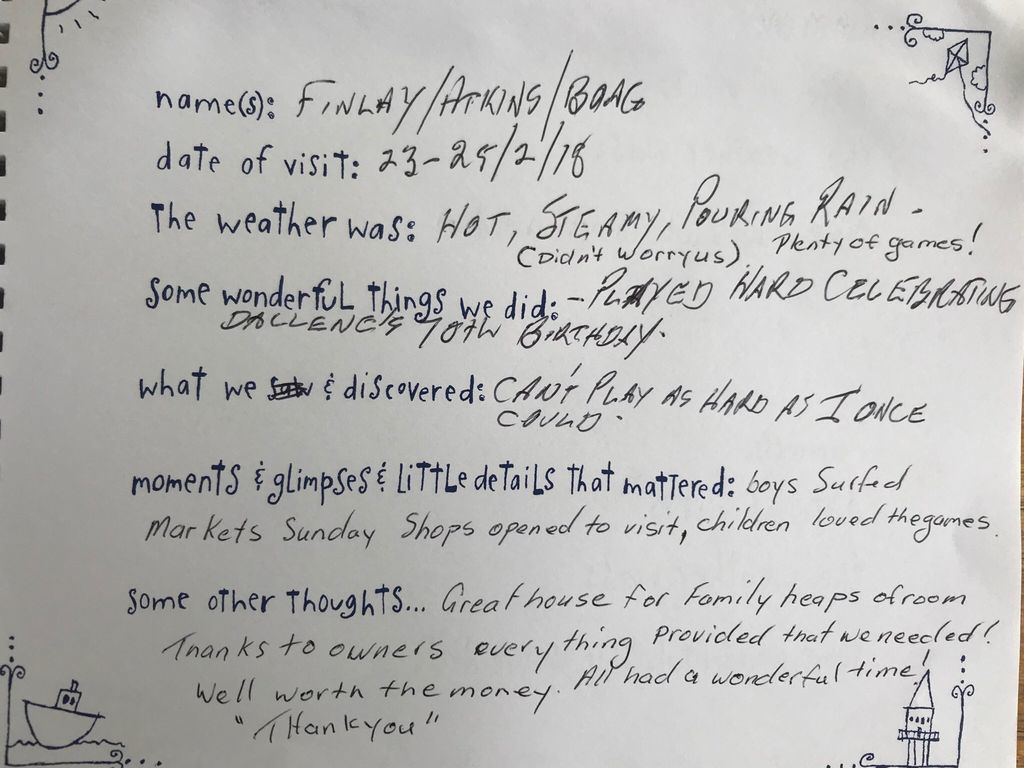 name(s): FINLAY/ATKINS/BOAG
date of visit: 23-25/2/18
The weather was: HOT, STEAMY, POURING RAIN -
(Didn't worry us) Plenty of games!
some wonderful things we did: - PLAYED HARD CELEBRATING
DALLENE'S 70TH BIRTHDAY.
what we saw & discovered: CAN'T PLAY AS HARD AS I ONCE
COULD.
moments & glimpses & little details that mattered: boys Surfed
Markets Sunday Shops opened to visit, children loved the games.
some other thoughts... Great house for Family heaps of room
Thanks to owners everything provided that we needed!
Well worth the money. All had a wonderful time!
"Thank you"